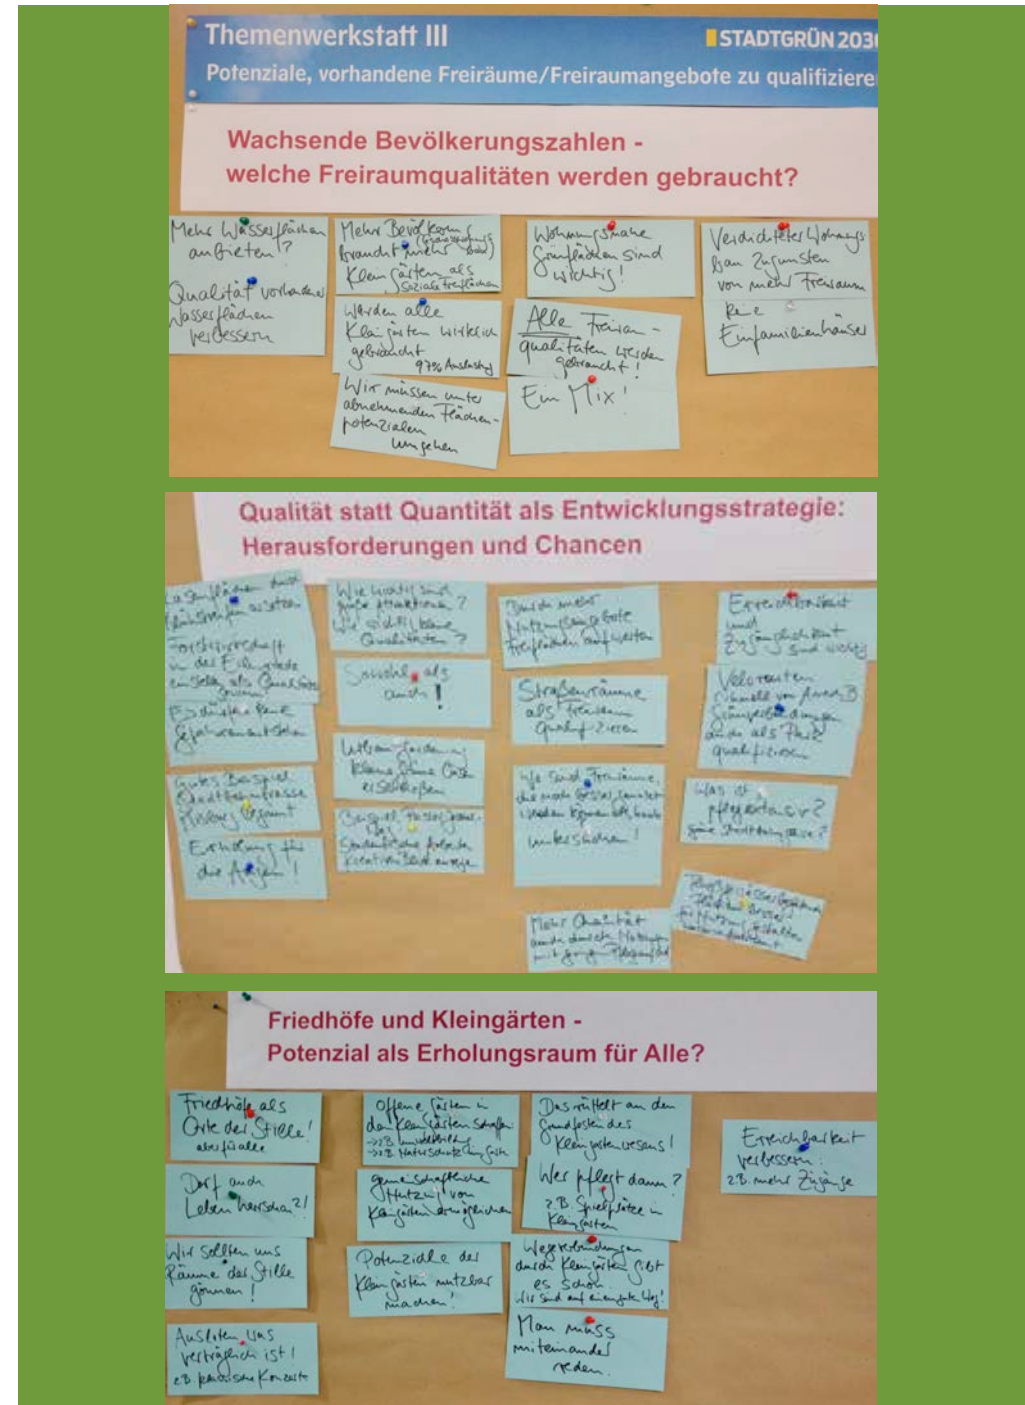 Themenwerkstatt III
STADTGRÜN 203
Potenziale, vorhandene Freiräume/Freiraumangebote zu qualifiziere
Wachsende Bevölkerungszahlen -
welche Freiraumqualitäten werden gebraucht?
Mehr Wasserflächen
anbieten?
Qualität vorhandener
Wasserflächen
verbessern
Mehr Bevölkerung
braucht mehr
Kleingärten als
soziale Freiflächen
Werden alle
Kleingärten wirklich
gebraucht
97% Auslastung
Wir müssen unter
abnehmenden Flächen-
potenzialen
umgehen
Wohnungsnahe
Grünflächen sind
wichtig!
Alle Freiraum-
qualitäten werden
gebraucht!
Ein Mix!
Verdichteter Wohnungs
bau zugunsten
von mehr Freiraum
Keine
Einfamilienhäuser
Qualität statt Quantität als Entwicklungsstrategie:
Herausforderungen und Chancen
Es dürfen keine
Gefahren entstehen
Gutes Beispiel
Stadtbahntrasse
Erholung für
die Augen!
Wie wichtig sind
große Attraktionen?
Wie wichtig kleine
Qualitäten?
Sowohl als
auch!
Urban Gardening
kleine grüne Oasen
erschließen
Beispiel
Studentische Arbeiten
Durch mehr
Nutzungsangebote
Freiflächen aufwerten
Straßenräume
als Freiraum
qualifizieren
Wo sind Freiräume,
die noch besser genutzt
werden können als heute
untersuchen!
Mehr Qualität
auch durch
mit
Erreichbarkeit
und
Zugänglichkeit
sind wichtig
Velorouten
schnell von A nach B
Grünverbindungen
auch als Park
qualifizieren
Was ist
pflegeextensiv?
Flächen besser
für Nutzung gestalten
Friedhöfe und Kleingärten -
Potenzial als Erholungsraum für Alle?
Friedhöfe als
Orte der Stille!
aber für alle
Darf auch
Leben herrschen?!
Wir sollten uns
Räume der Stille
gönnen!
Ausloten was
verträglich ist!
z.B. Konzerte
Offene Gärten in
den Kleingärten schaffen
→z.B. Umweltbildung
→z.B. Naturschutz
gemeinschaftliche
Nutzung von
Kleingärten ermöglichen
Potenziale der
Kleingärten nutzbar
machen!
Das rüttelt an den
Grundfesten des
Kleingartenwesens!
Wer pflegt dann?
z.B. Spielplätze in
Kleingärten
Wegeverbindungen
durch Kleingärten gibt
es schon.
Wir sind auf einem guten Weg!
Man muss
miteinander
reden.
Erreichbarkeit
verbessern:
z.B. mehr Zugänge